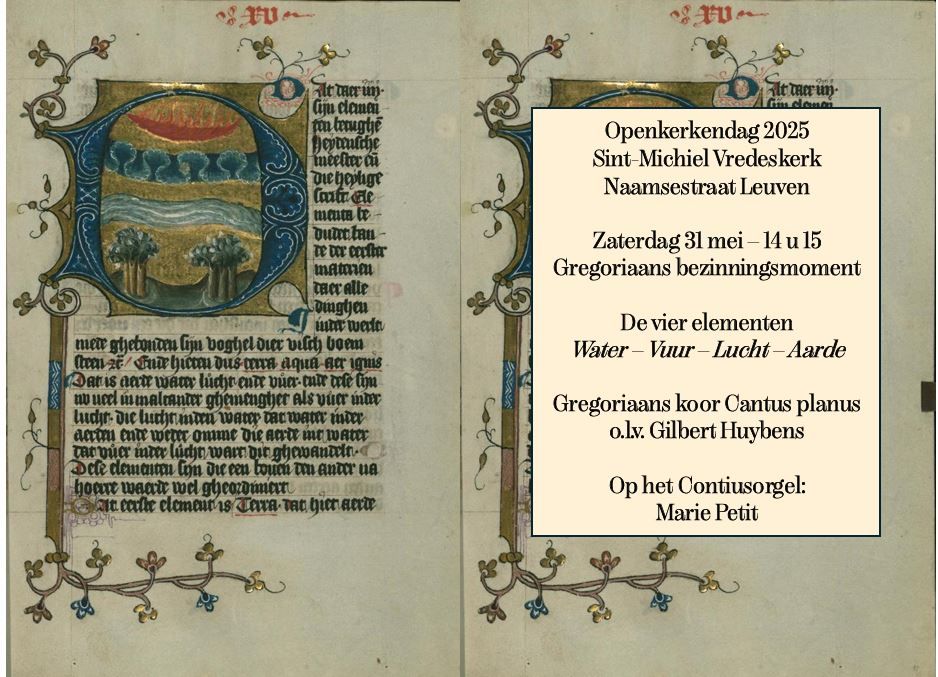 XV
At daer un
sijn elemen
ten tughe
heydensche
meester en
die heylige
scrift. Ele
menta be
dudet fun
de der eerster
materien
daer alle
dinghen
inder werlt
mede ghebonden sijn voghel dier visch boem
steen Ende hieten dus terra aqua aer ignis
Dat is aerde water lucht ende vuer ende dese sijn
nv ueel in malcander ghemenghet als vuer inder
lucht die lucht inden water dat water inder
aerden ende weder omme die aerde int water
dat vuer inder lucht wart die ghewandelt
Dese elementen sijn die een bouen den ander na
hoerre waerde wel gheordiniert
Dat eerste element is Terra dat hiet aerde
XV
At daer un
sijn elemen
Openkerkendag 2025
Sint-Michiel Vredeskerk
Naamsestraat Leuven
Zaterdag 31 mei – 14 u 15
Gregoriaans bezinningsmoment
De vier elementen
Water – Vuur – Lucht – Aarde
Gregoriaans koor Cantus planus
o.l.v. Gilbert Huybens
Op het Contiusorgel:
Marie Petit